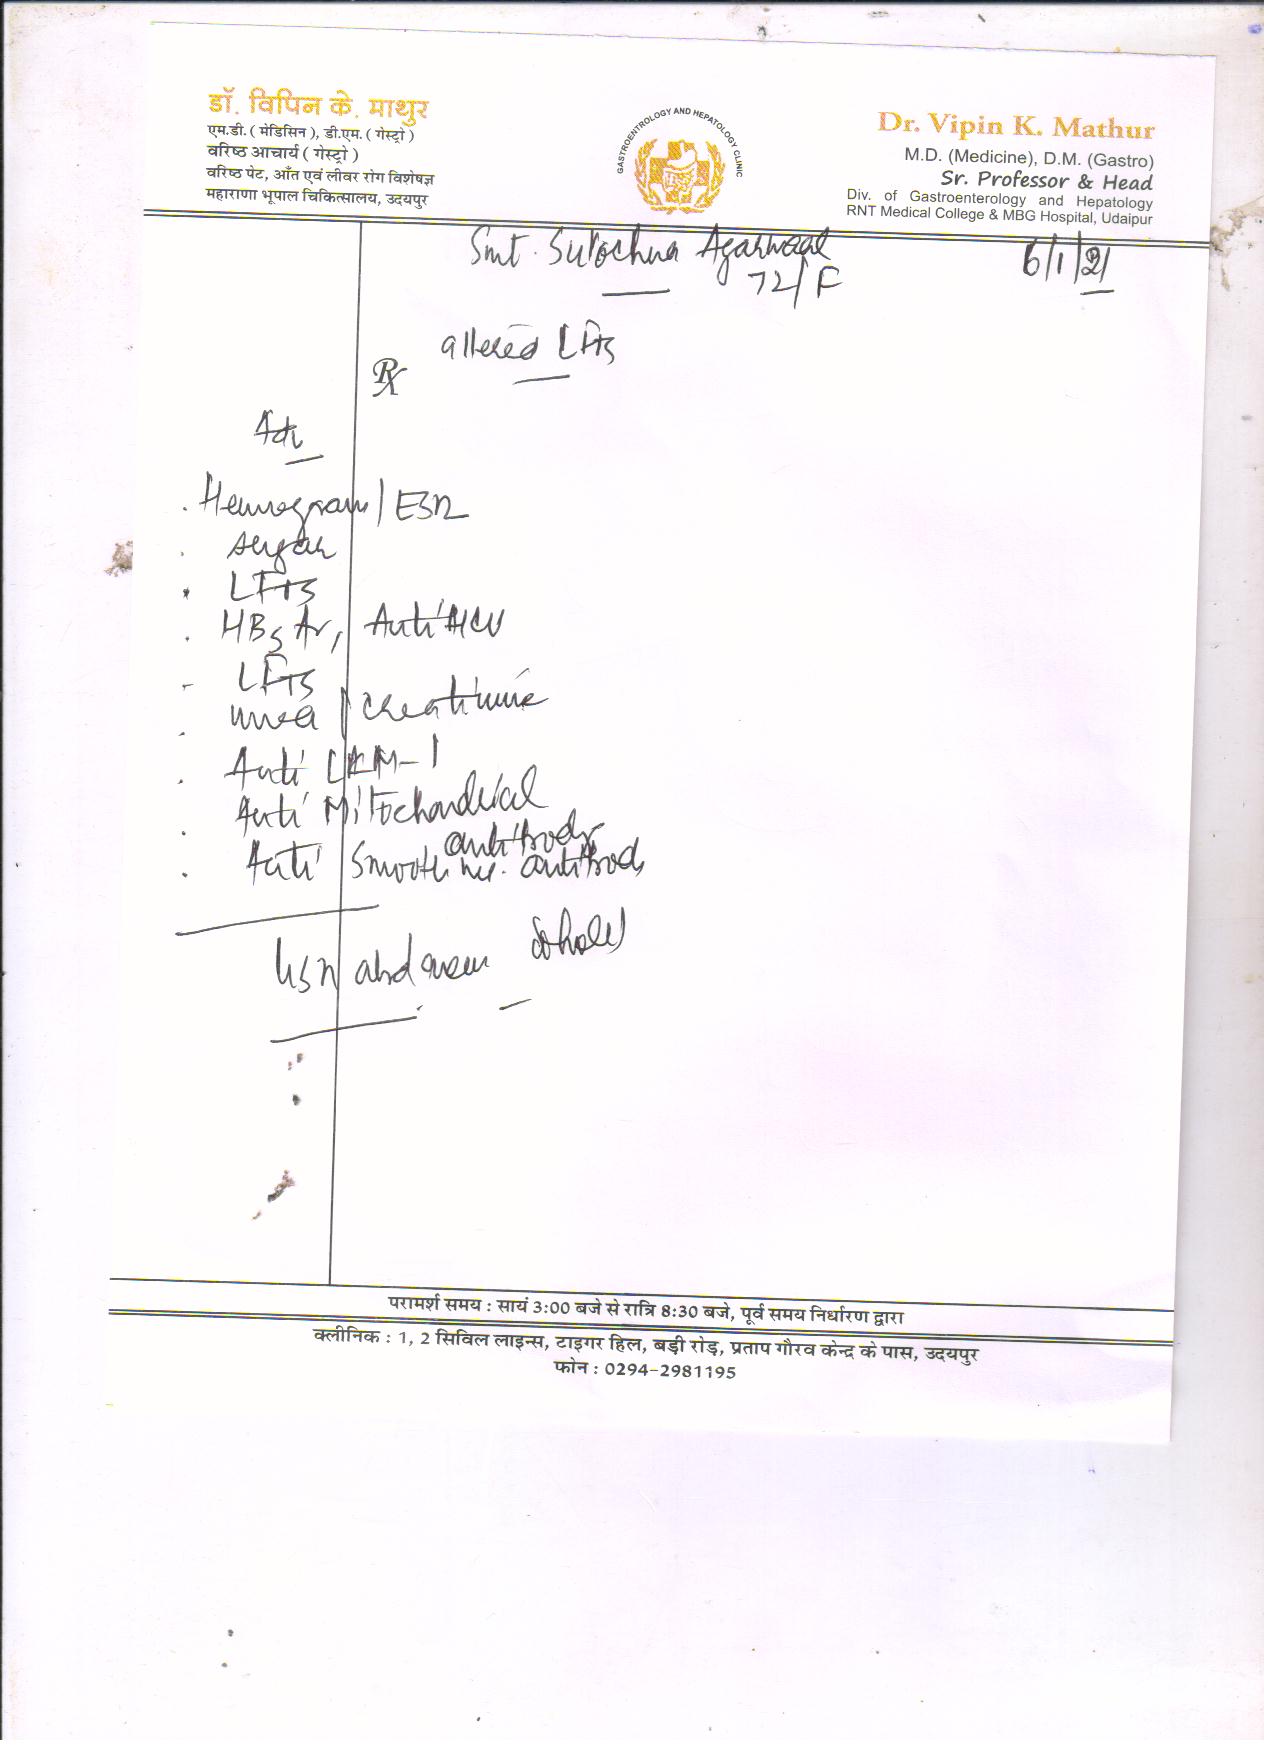 डॉ. विपिन के. माथुर
एम.डी. ( मेडिसिन ), डी.एम. ( गेस्ट्रो )
वरिष्ठ आचार्य ( गेस्ट्रो )
वरिष्ठ पेट, आँत एवं लीवर रोग विशेषज्ञ
महाराणा भूपाल चिकित्सालय, उदयपुर
GASTROENTROLOGY AND HEPATOLOGY CLINIC
Dr. Vipin K. Mathur
M.D. (Medicine), D.M. (Gastro)
Sr. Professor & Head
Div. of Gastroenterology and Hepatology
RNT Medical College & MBG Hospital, Udaipur
Smt. Sulochna Agarwaal
72/F
6/1/21
altered LFTs
Rx
Adv
. Hemogram/ESR
. sugar
. LFTs
. HBsAg, Anti HCV
- LFTs
. urea/creatinine
. Anti LKM-1
. Anti Mitochondrial
antibody
. Anti Smooth mu. antibody
USG abdomen (whole)
परामर्श समय : सायं 3:00 बजे से रात्रि 8:30 बजे, पूर्व समय निर्धारण द्वारा
क्लीनिक : 1, 2 सिविल लाइन्स, टाइगर हिल, बड़ी रोड़, प्रताप गौरव केन्द्र के पास, उदयपुर
फोन : 0294-2981195